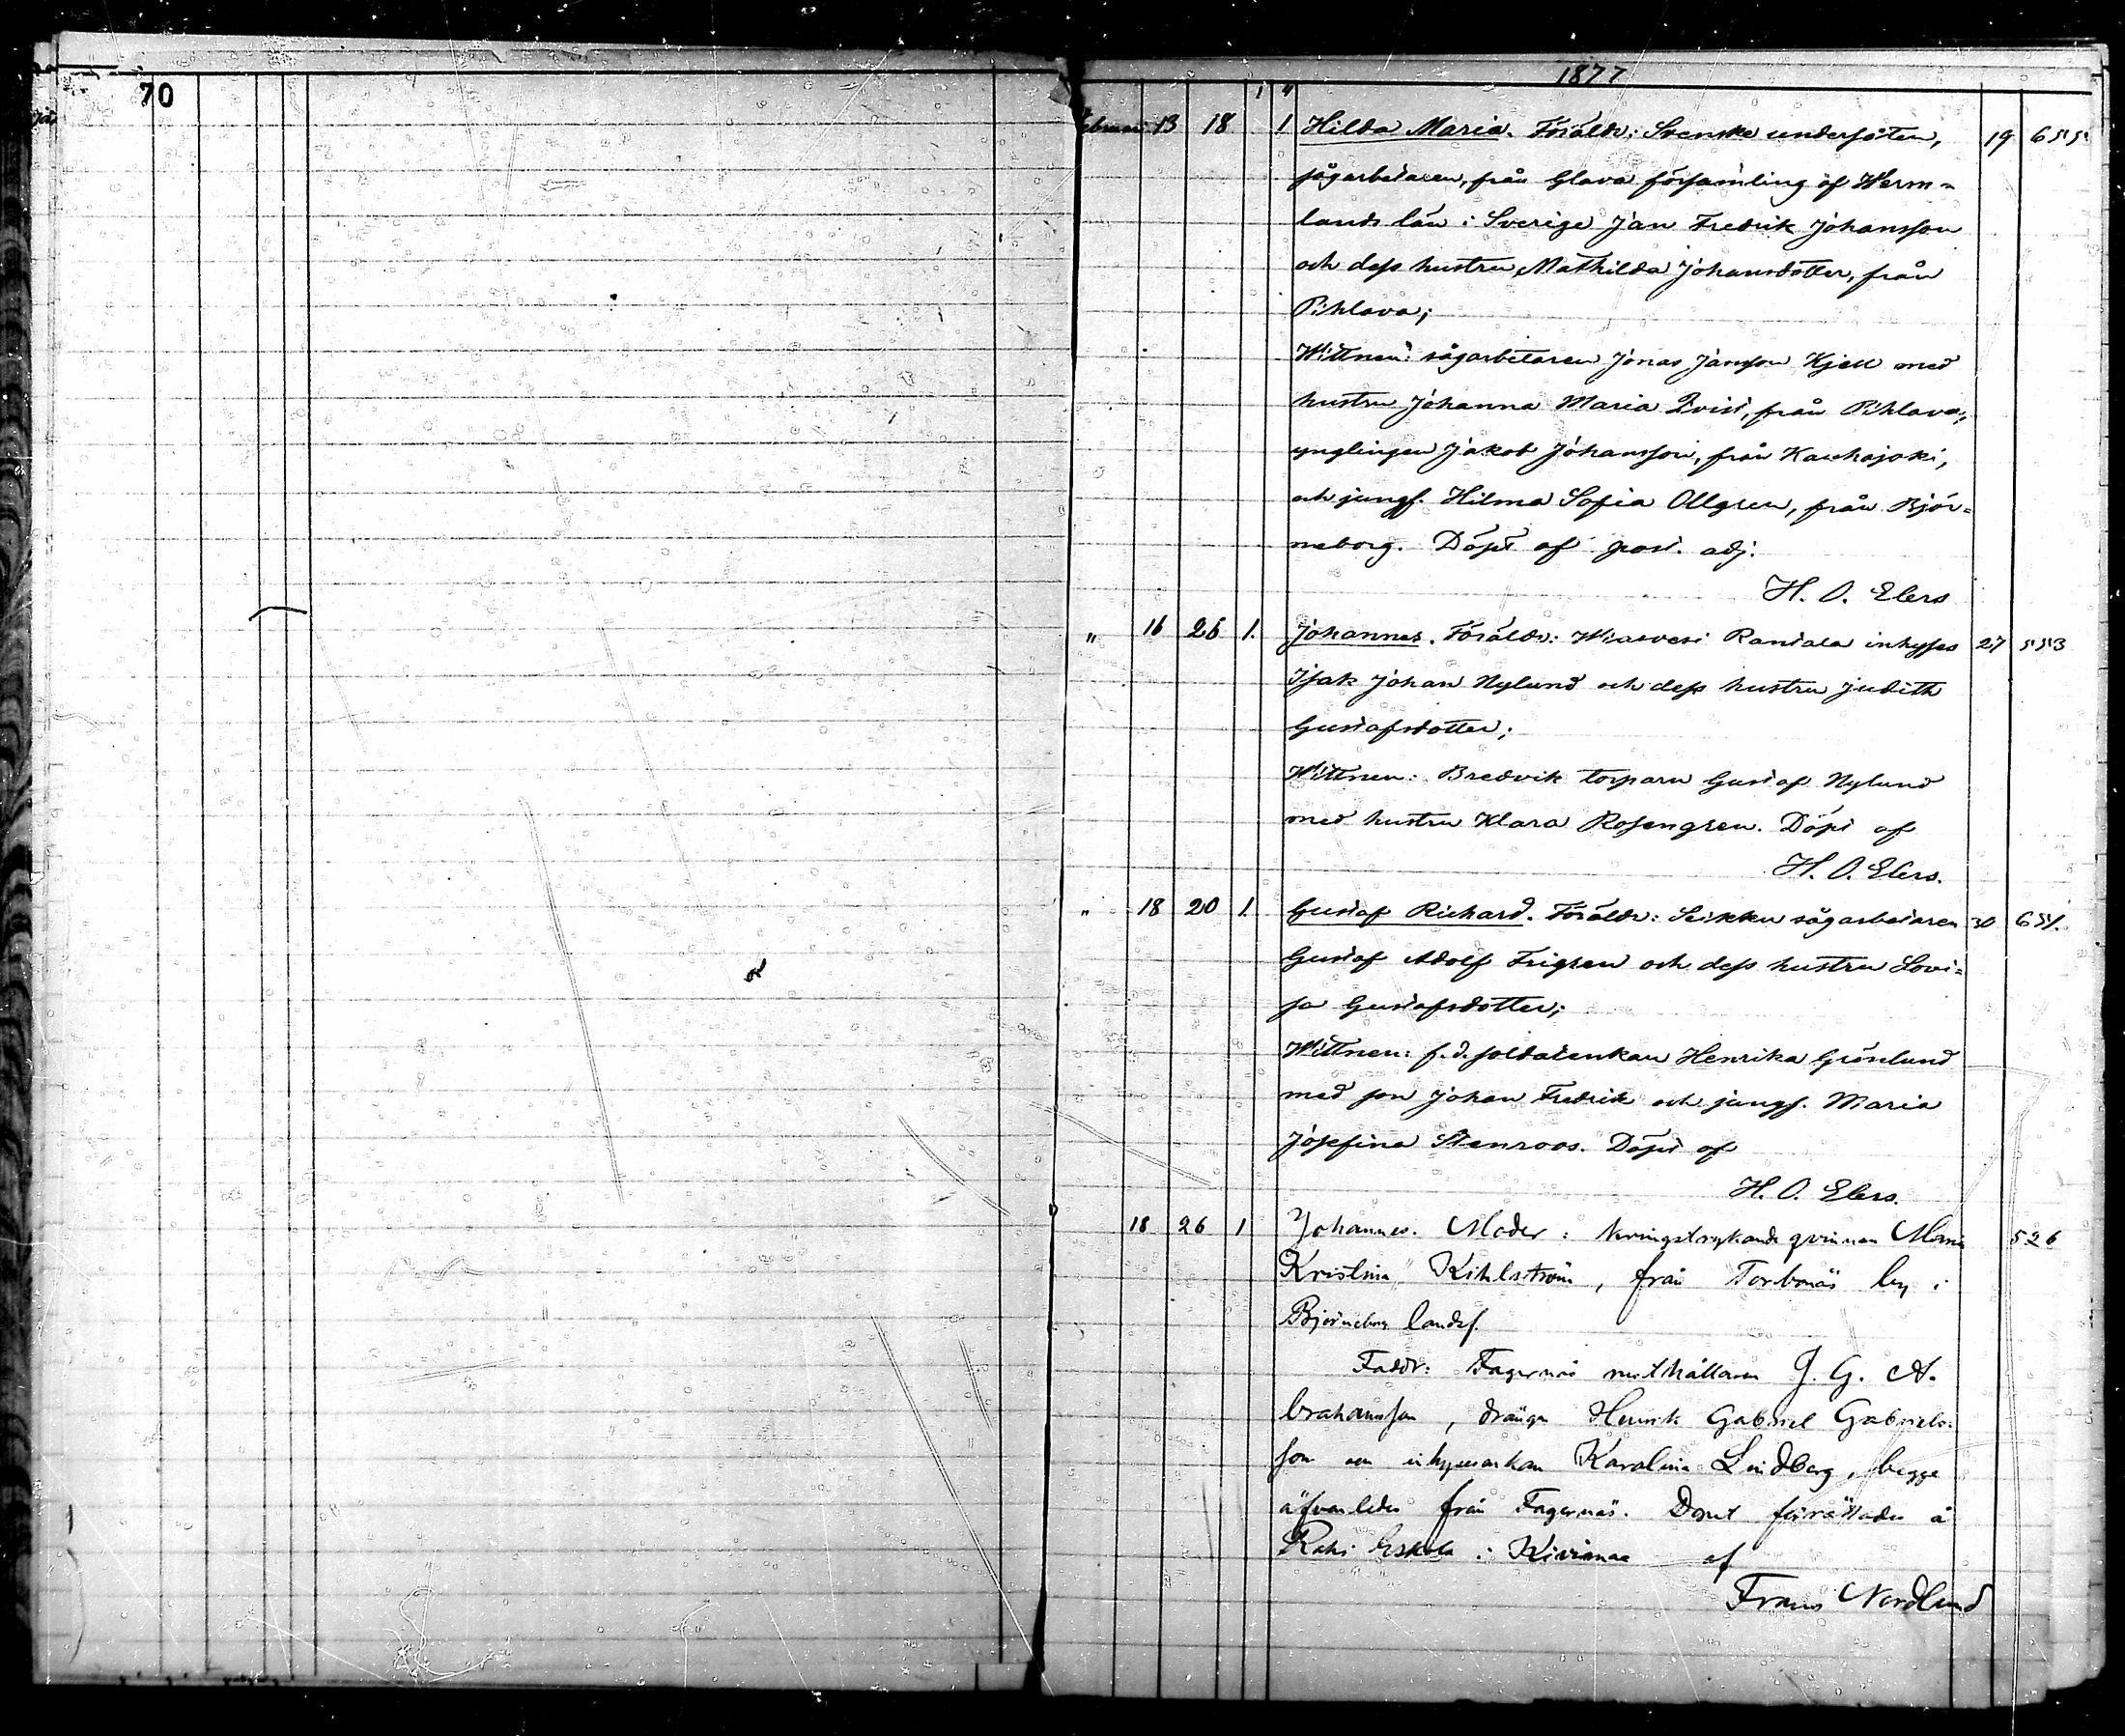 70
1877
Februari 13 18 1 Hilda Maria. Föräldr: Svenske undersåten, 19 655
sågarbetaren, från Glava församling af Werm=
lands län i Sverige Jan Fredrik Johansson
och dess hustru Mathilda Johansdotter, från
Pihlava;
Wittnen: sågarbetaren Jonas Jansson Kjell med
hustru Johanna Maria Qvist, från Pihlava,
ynglingen Jakob Johansson, från Kauhajoki,
och jungf. Hilma Sofia Ollgren, från Björ=
neborg. Döpt af past. adj.
H. O. Elers
" 16 26 1. Johannes. Föräldr: Wiasvesi Rantala inhyses 27 553
Isak Johan Nylund och dess hustru Judith
Gustafsdotter;
Wittnen: Bredvik torparn Gustaf Nylund
med hustru Klara Rosengren. Döpt af
H. O. Elers.
" 18 20 1. Gustaf Richard. Föräldr: Seikku sågarbetaren 30 651.
Gustaf Adolf Frigren och dess hustru Lovi=
sa Gustafsdotter;
Wittnen: f.d. soldatenkan Henrika Grönlund
med son Johan Fredrik och jungf. Maria
Josefina Stenroos. Döpt af
H. O. Elers.
18 26 1 Johannes. Moder: kringstrykande qvinnan Maria 526
Kristina Kihlström, från Torbonäs by i
Björneborg landsf.
Faddr: Fagernäs J. G. A.
brahamsson, drängen Henrik Gabriel Gabriels=
son och inhysesenkan Karolina Lindberg, begge
äfvenledes från Fagernäs. Dopet förrättades å
Eskola i Kivinmaa af
Frans Nordlund